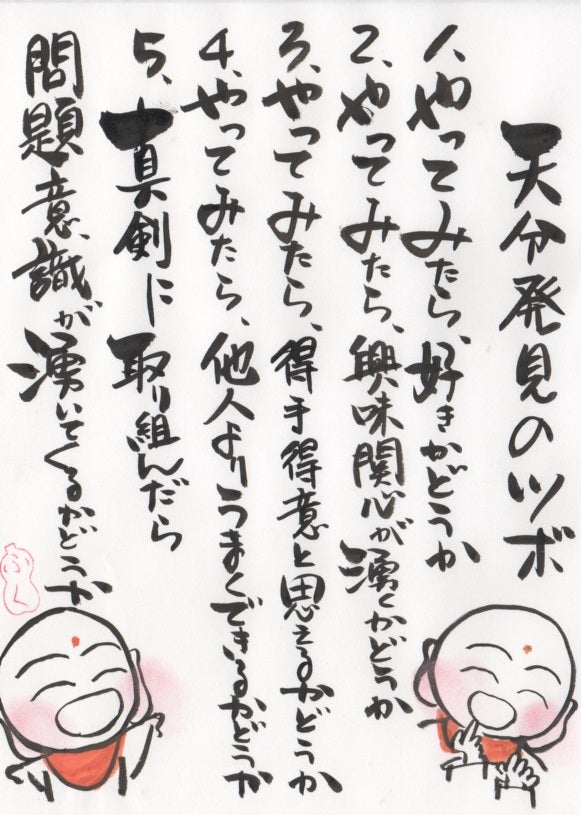 天分発見のツボ
1、やってみたら、好きかどうか
2、やってみたら、興味関心が湧くかどうか
3、やってみたら、得手得意と思えるかどうか
4、やってみたら、他人よりうまくできるかどうか
5、真剣に取り組んだら
問題意識が湧いてくるかどうか